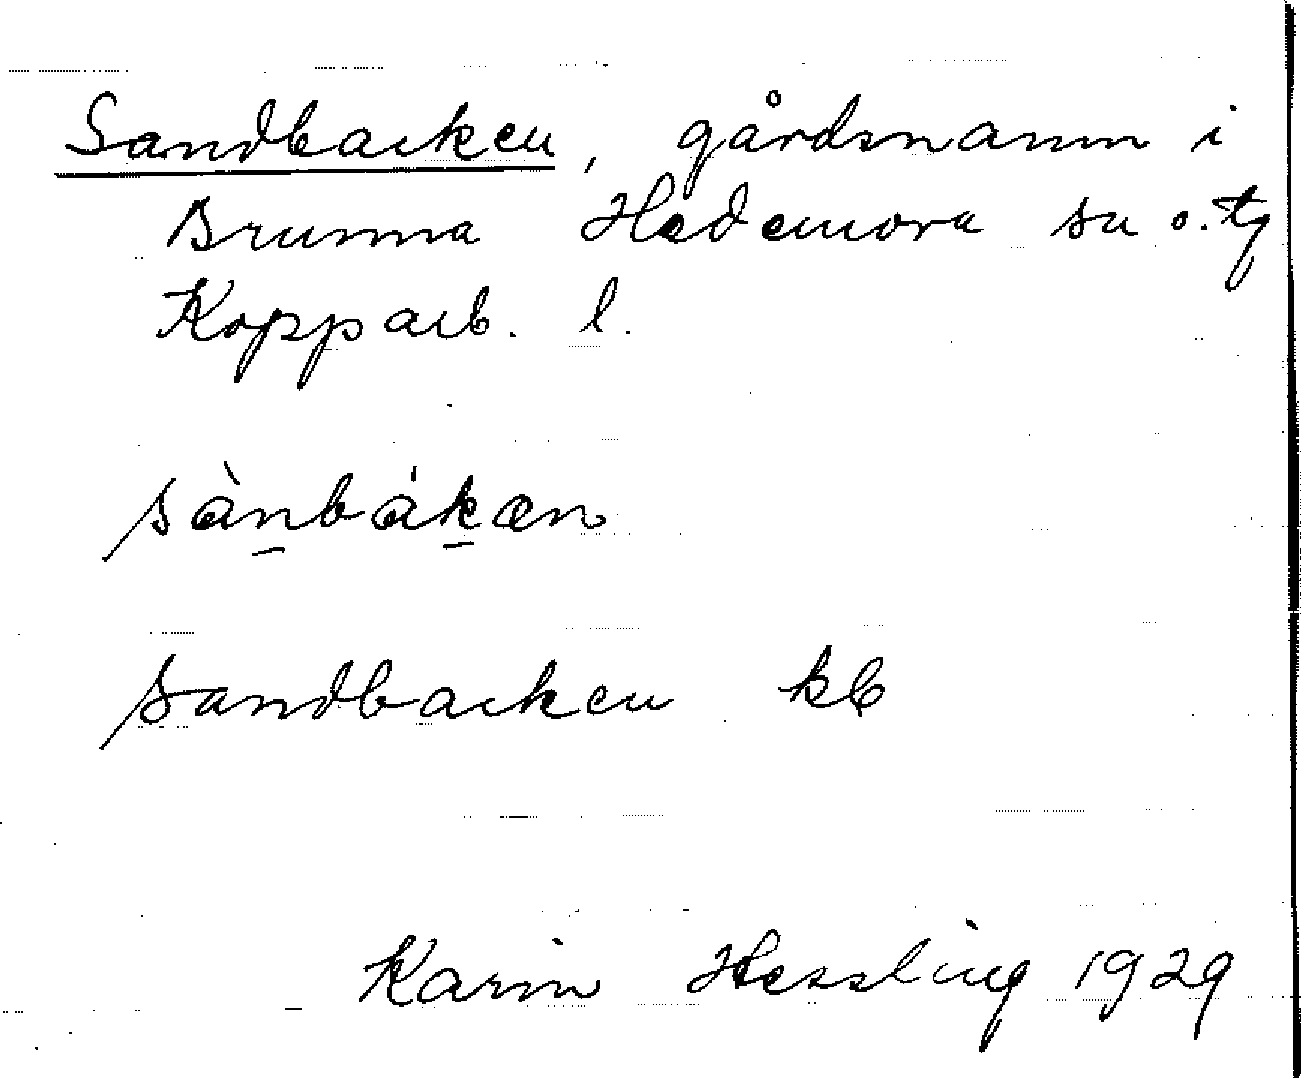 Sandbacken, gårdsnamn i
Brunna Hedemora sn o. tg
Kopparb. l.
sànbákæn
Sandbacken kb
Karin Hessling 1929